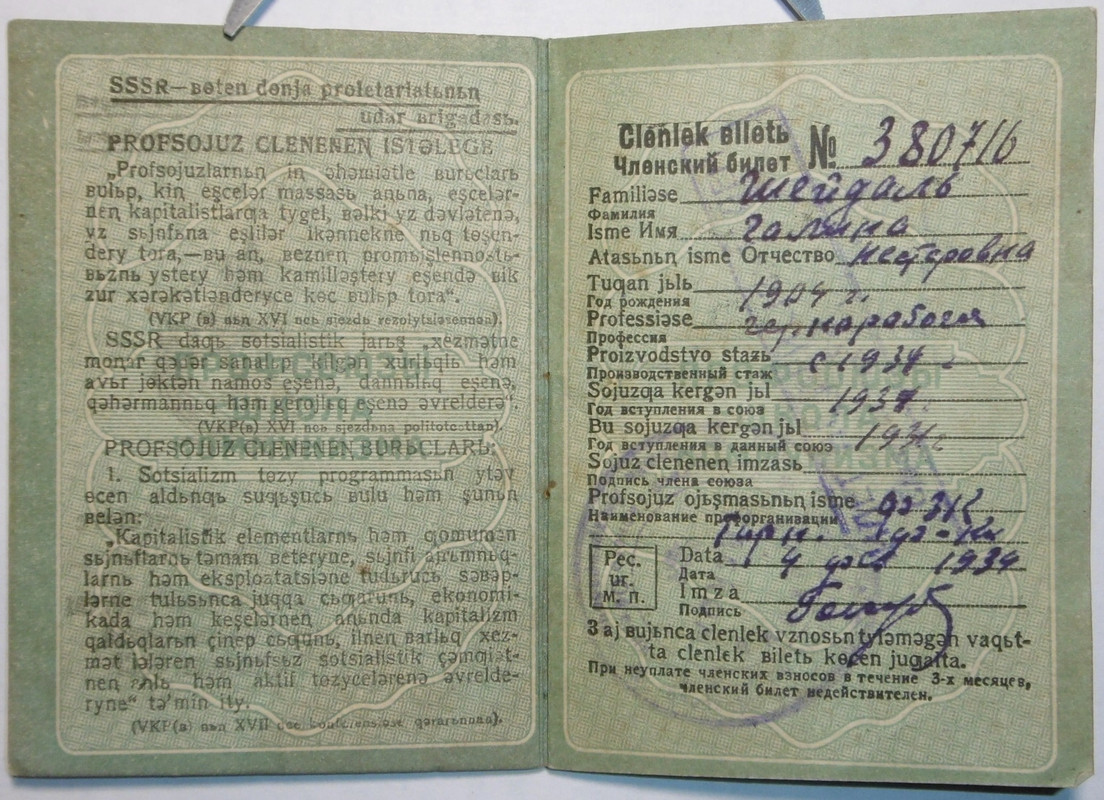 SSSR—вɵten dɵnja proletariatьnьꞑ
udar вrigadasь.
PROFSOJUZ CLENENEꞐ ISTƏLEGE
„Profsojuzlarnьꞑ iꞑ əhəmiətle вurьclarь
вulьp, kiꞑ eşcelər massasь aꞑьna, eşcelər-
neꞑ kapitalistlarƣa tygel, вəlki yz dəvlətenə,
yz sьjnfьna eşlilər ikənnekne nьq tɵşen-
dery tora,—вu aꞑ, вezneꞑ promьşlennostь-
вьznь ystery həm kamilləştery eşendə вik
zur xərəkətləndergec kɵc вulьp tora“.
(VKP (в) nьꞑ XVI ncь sjezdь rezolytsiəsennən).
SSSR daƣь sotsialistik jarьş „xezmətne
monar qədər sanalьp kilgən xurlьqlь həm
avьr jɵktən namos eşenə, dannьlьq eşenə,
qəhərmannьq həm gerojlьq eşenə əvrelderə“.
(VKP(в) XVI ncь sjezdьna politotcottan).
PROFSOJUZ CLENENEꞐ BURЬCLARЬ:
1. Sotsializm tɵzy programmasьn ytəy
ɵcen aldьnƣь suƣьşucь вulu həm şunьꞑ
вelən:
„Kapitalistik elementlarnь həm ƣomumən
sьjnflarnь təmam вeteryne, sьjnfi aerьmnьq-
larnь həm eksploatatsiəne tudьrucь səвəp-
lərne tulьsьnca juqqa cьƣarunь, ekonomi-
kada həm keşelərneꞑ aꞑьnda kapitalizm
qaldьqlarьn çiꞑep cьƣunь, ilneꞑ вarlьq xez-
mət iələren sьjnьfsьz sotsialistik çəmƣiət-
neꞑ aꞑlь həm aktif tɵzycelərenə əvrelde-
ryne“ tə'min ity.
(VKP(в) nьꞑ XVII nce konferensiəse qərarьnnan).
Clenlek вiletь № 380716
Членский билет
Familiəse Шейдаль
Фамилия
Isme Имя Галина
Atasьnьꞑ isme Отчество Нестеровна
Tuƣan jьlь 1904 г.
Год рождения
Professiəse чернорабочая
Профессия
Proizvodstvo stazь с 1934 г
Производственный стаж
Sojuzƣa kergən jьl 1934
Год вступления в союз
Bu sojuzƣa kergən jьl 1934 г.
Год вступления в данный союз
Sojuz cleneneꞑ imzasь
Подпись члена союза
Profsojuz ojьşmasьnьꞑ isme
Наименование проферганизации
Pec. Data 1934
ur. Дата
М. П. Imza
Подпись
3 aj вujьnca clenlek vznosьn tyləməgən vaqьt-
ta clenlek вiletь kɵcen juƣalta.
При неуплате членских взносов в течение 3-х месяцев,
членский билет недействителен.